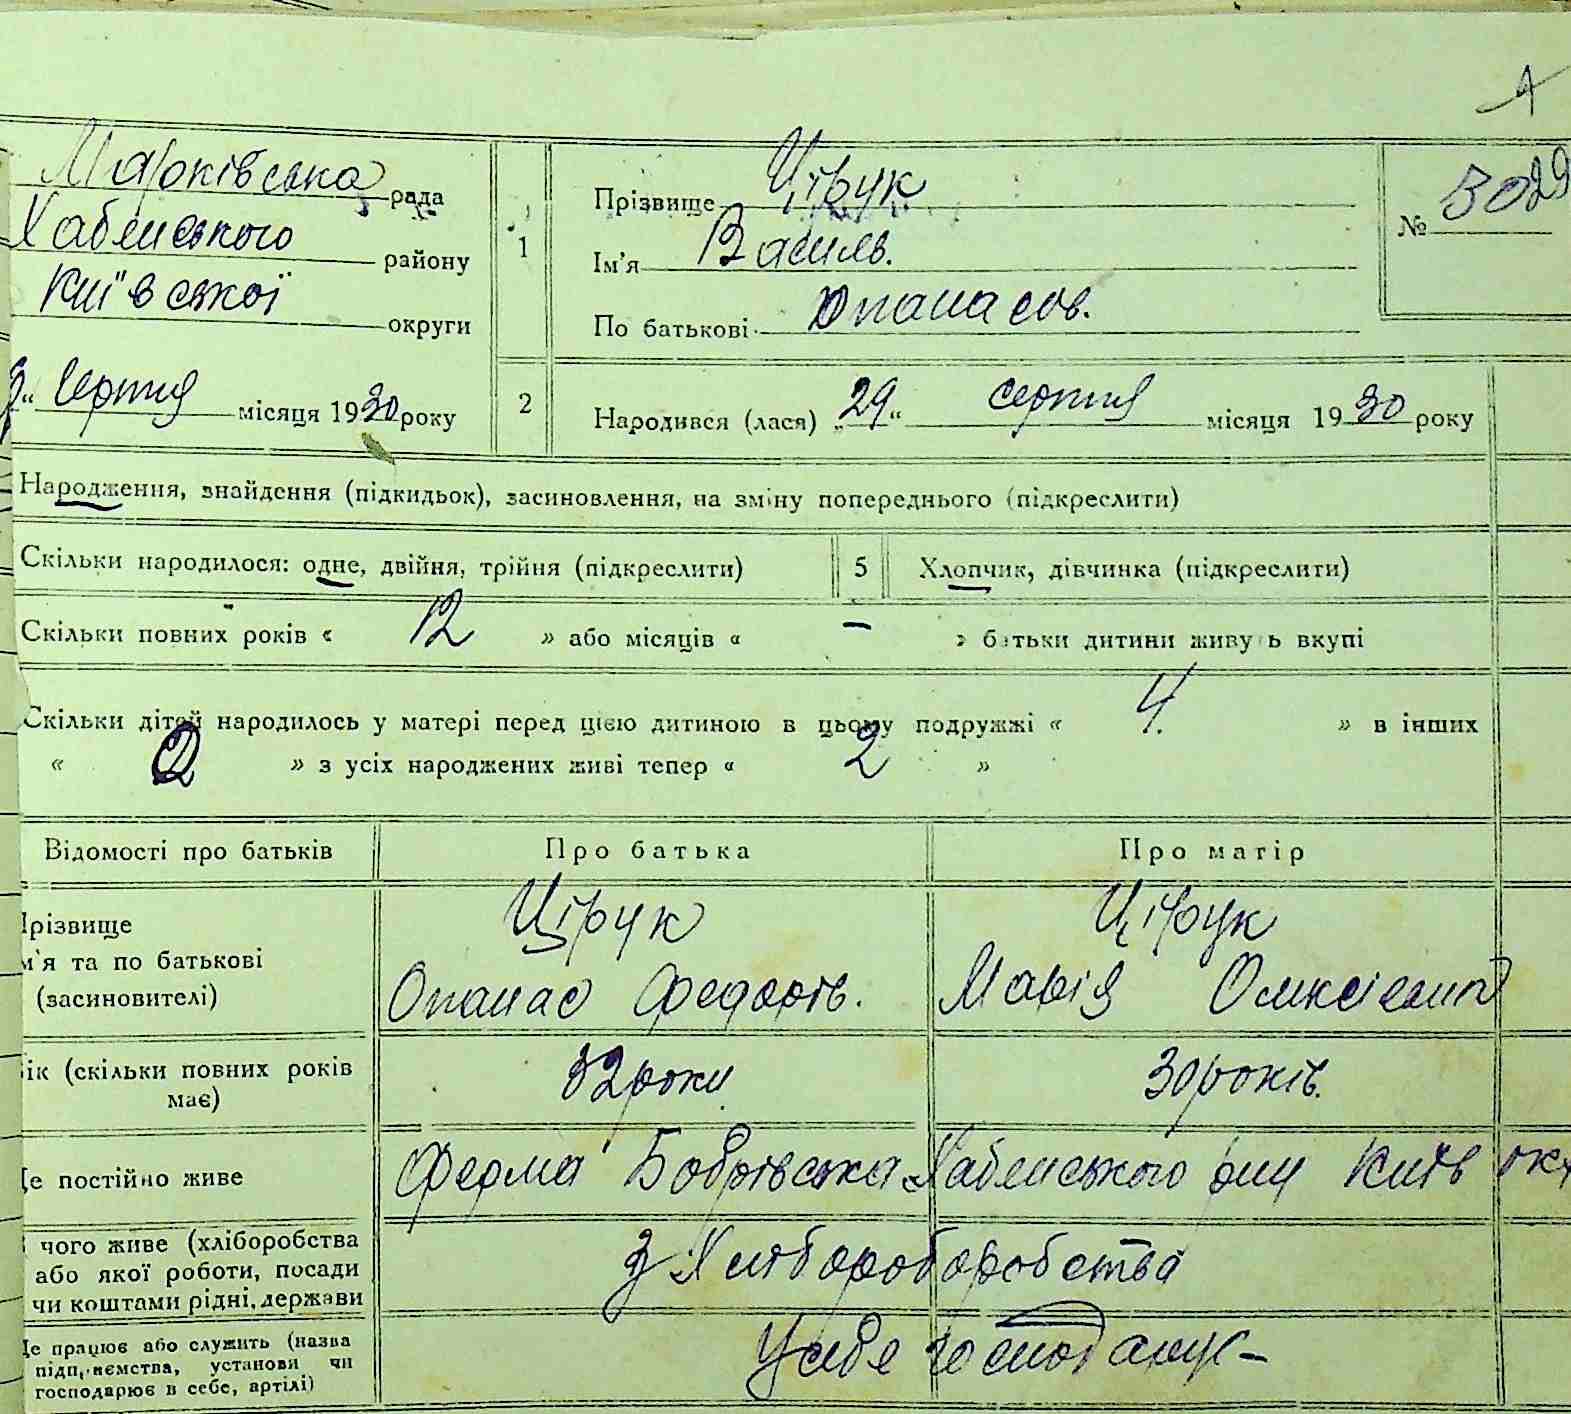 Марківська рада
Хабенського району
Київської округи
серпня місяця 1930 року
1
Прізвище Цірук
Ім'я Василь.
По батькові Опанасов.
№ 3029
2
Народився (лася) „29“ серпня місяця 1930 року
Народження, знайдення (підкидьок), засиновлення, на зміну попереднього (підкреслити)
Скільки народилося: одне, двійня, трійня (підкреслити)
5
Хлопчик, дівчинка (підкреслити)
Скільки повних років « 12 » або місяців « – » батьки дитини живуть вкупі
Скільки дітей народилось у матері перед цією дитиною в цьому подружжі « 4. » в інших
« » з усіх народжених живі тепер « 2 »
Відомості про батьків
Про батька
Про матір
Прізвище
ім'я та по батькові
(засиновителі)
Цірук
Опанас Федорів.
Цірук
Марія Олексієвна
Вік (скільки повних років
має)
32 роки
30 років.
Де постійно живе
Ферма Бобрівська Хабенського рну Київ окр
чого живе (хліборобства
або якої роботи, посади
чи коштами рідні, держави
З Хлібороборобства
Де працює або служить (назва
підприємства, установи чи
господарює в себе, артілі)
У себе господарує